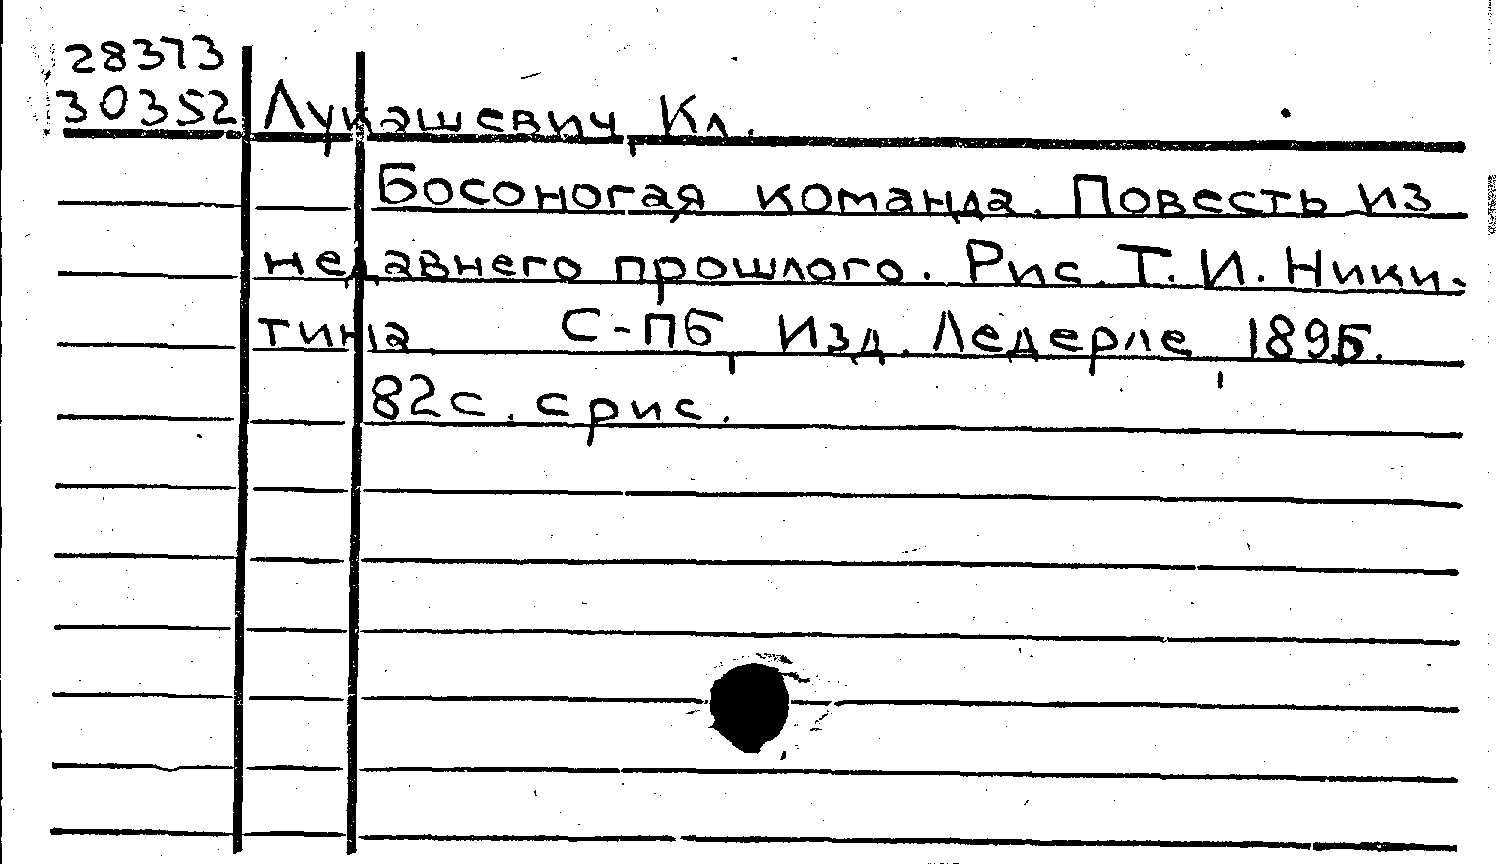 28373
30352 Лукашевич, Кл.
Босоногая команда. Повесть из
недавнего прошлого. Рис. Т. И. Ники-
тина С-ПБ, Изд. Ледерле, 1896.
82с. с рис.